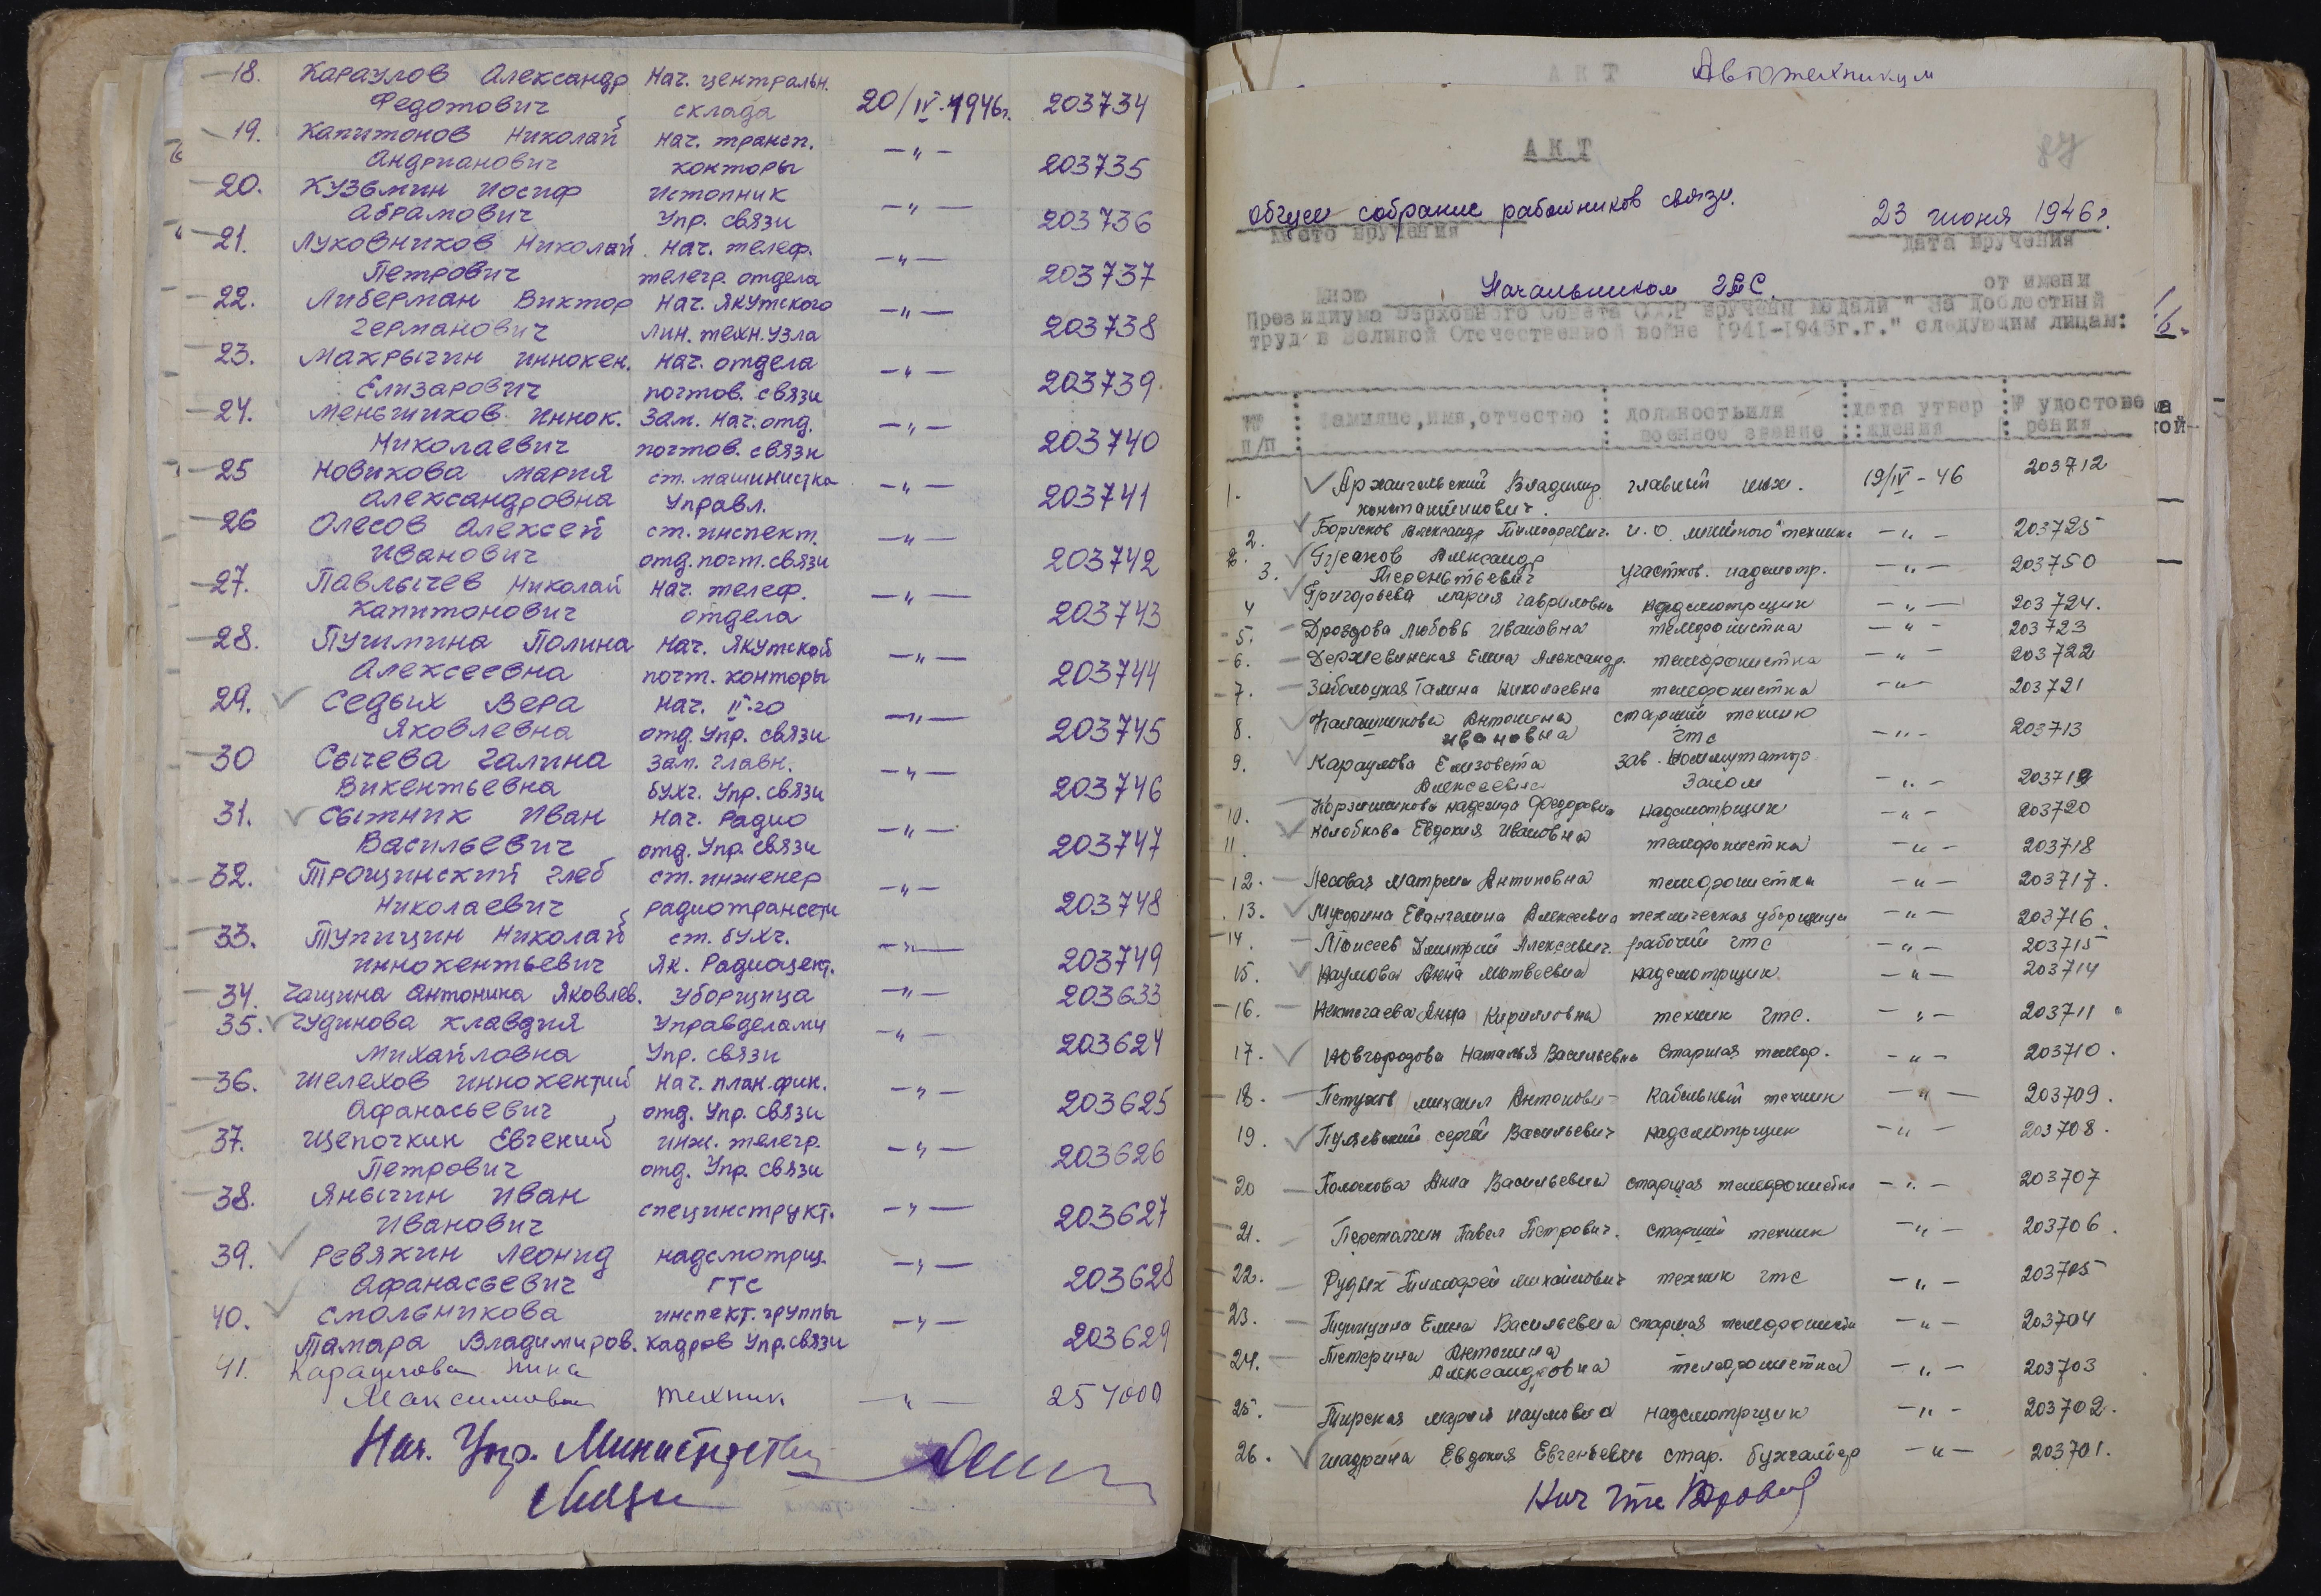 18. Караулов Александр Нач. центральн.
Федотович склада 20/IV-1946г. 203734
19. Капитонов Николай Нач. трансп.
Андрианович конторы —"— 203735
20. Кузьмин Иосиф Истопник
Абрамович Упр. связи —"— 203736
21. Луковников Николай Нач. телеф.
Петрович телегр. отдела —"— 203737
22. Либерман Виктор Нач. Якутского
Германович лин. техн. узла —"— 203738
23. Махрычин Иннокен. Нач. отдела
Елизарович почтов. связи —"— 203739
24. Меньшиков Иннок. Зам. нач. отд.
Николаевич почтов. связи —"— 203740
25 Новикова Мария ст. машинистка
Александровна Управл. —"— 203741
26 Олесов Алексей ст. инспект.
Иванович отд. почт. связи —"— 203742
27. Павлычев Николай Нач. телеф.
Капитонович отдела —"— 203743
28. Пучинина Полина Нач. Якутской
Алексеевна почт. конторы —"— 203744
29. Седых Вера Нач. II-го
Яковлевна отд. Упр. связи —"— 203745
30 Сычева Галина Зам. главн.
Викентьевна бухг. Упр. связи —"— 203746
31. Сытник Иван Нач. Радио
Васильевич отд. Упр. связи —"— 203747
32. Трощинский Глеб ст. инженер
Николаевич радиотрансети —"— 203748
33. Тупицин Николай ст. бухг.
Иннокентьевич Як. Радиоцент. —"— 203749
34. Чащина Антонина Яковлев. Уборщица —"— 203633
35. Чудинова Клавдия Управделами
Михайловна Упр. связи —"— 203624
36. Шелехов Иннокентий Нач. план. фин.
Афанасьевич отд. Упр. связи —"— 203625
37. Щепочкин Евгений инж. телегр.
Петрович отд. Упр. связи —"— 203626
38. Янычин Иван
Иванович специнструкт. —"— 203627
39. Ревякин Леонид надсмотрщ.
Афанасьевич ГТС —"— 203628
40. Смольникова инспект. группы
Тамара Владимиров. кадров Упр. связи —"— 203629
41. Караулова Нина
Максимовна техник —"— 254000
Нач. Упр. Министерства
связи
АКТ Автотехникум
87
АКТ
общее собрание работников связи. 23 июня 1946г.
место вручения дата вручения
Мною Начальником ГТС от имени
Президиума Верховного Совета СССР вручены медали "За доблестный
труд в Великой Отечественной войне 1941-1945г.г." следующим лицам:
№№ Фамилие, имя, отчество должность или дата утвер № удостове
п/п военное звание ждения рения
1. Архангельский Владимир главный инж. 19/IV-46 203712
Константинович.
2. Борисков Александр Тимофеевич. И.О. линейного техника —"— 203725
3. Гусанов Александр
Терентьевич участков. надсмотр. —"— 203750
4 Григорьева Мария Гавриловна надсмотрщик —"— 203724.
5. Дроздова Любовь Ивановна телефонистка —"— 203723
6. Держевинская Елена Александр. телефонистка —"— 203722
7. Заболоцкая Галина Николаевна телефонистка —"— 203721
8. Калашникова Антонина старший техник
Ивановна ГТС —"— 203713
9. Караулова Елизовета зав. Коммутатор
Алексеевна Залом —"— 203719
10. Коржинникова Надежда Федоровна надсмотрщик —"— 203720
11. Колобкова Евдокия Ивановна телефонистка —"— 203718
12. Лесовая Матрена Антиповна телефонистка —"— 203717.
13. Мухорина Евангелина Алексеевна техническая уборщица —"— 203716.
14. Моисеев Дмитрий Алексеевич. рабочий ГТС —"— 203715
15. Наумова Анна Матвеевна надсмотрщик —"— 203714
16. Нектегаева Анна Кирилловна техник ГТС. —"— 203711
17. Новгородова Наталья Васильевна старшая телеф. —"— 203710.
18. Петухов Михаил Антонович кабельный техник —"— 203709.
19. Пуляевский Сергей Васильевич надсмотрщик —"— 203708.
20 Полоскова Анна Васильевна старшая телефонистка —"— 203707
21. Перетолчин Павел Петрович. старший техник —"— 203706.
22. Рудых Тимофей Михайлович техник ГТС —"— 203705
23. Тупицина Елена Васильевна старшая телефонистка —"— 203704
24. Тетерина Антонина
Александровна телефонистка —"— 203703
25. Тирская Мария Наумовна надсмотрщик —"— 203702.
26. Шадрина Евдокия Евгеньевна стар. бухгалтер —"— 203701.
Нач ГТС